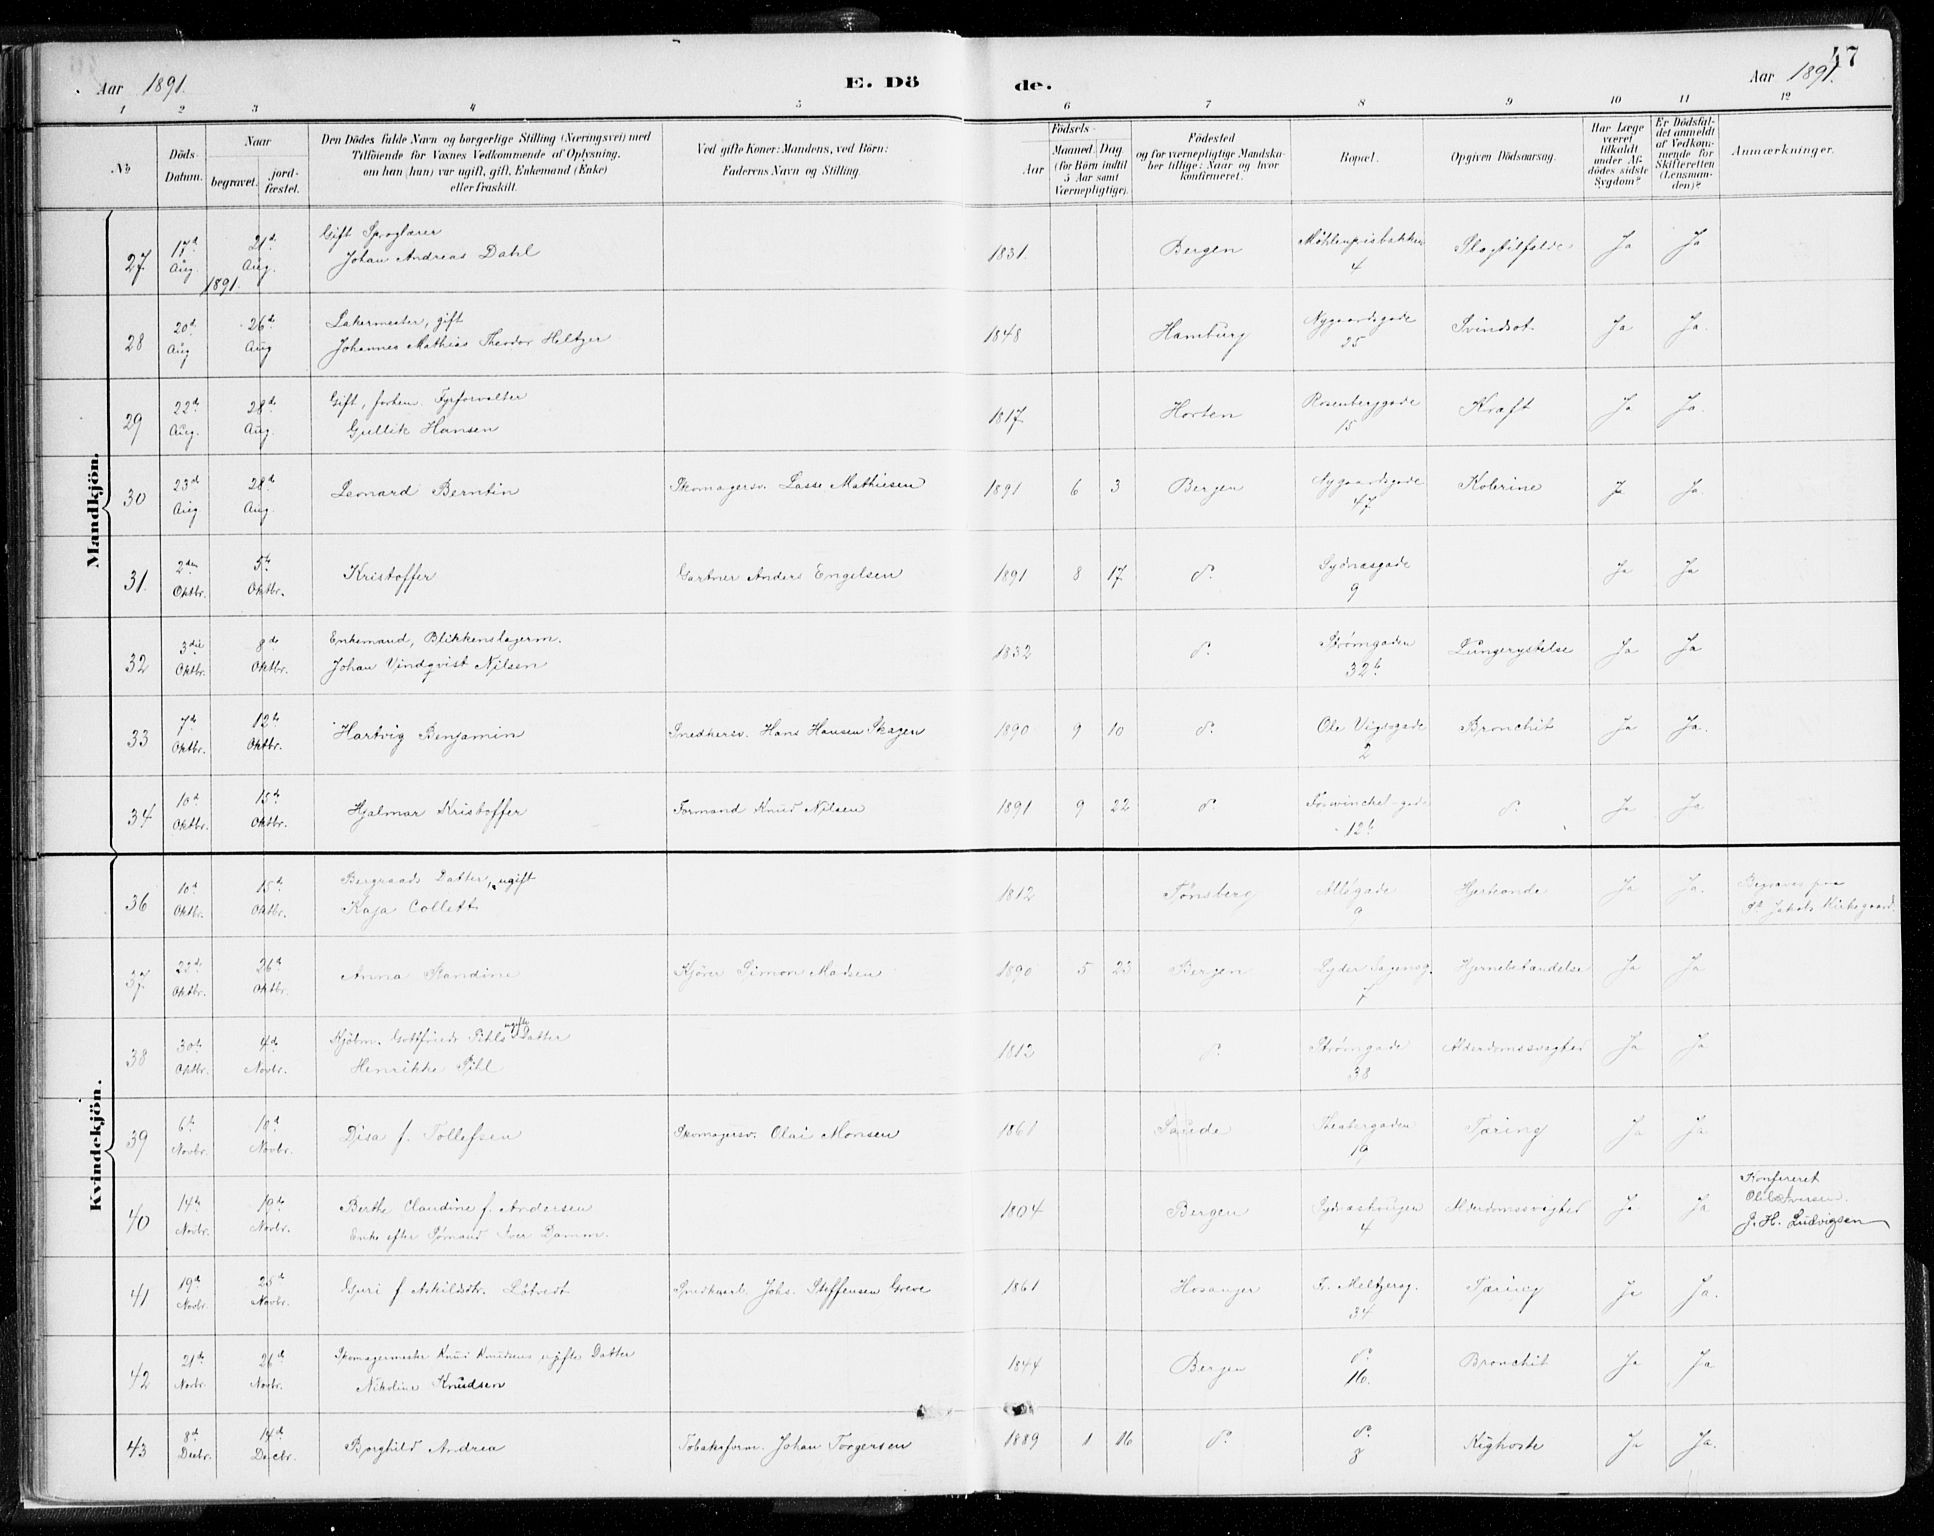 Aar 1891. E. Dö de. Aar 1891. 47
1 2 3 4 5 6 7 8 9 10 11 12
No
Döds-Datum.
Naar
begravet.
jordfæstet.
Den Dödes fulde Navn og borgerlige Stilling (Næringsvei) med
Tilföiende for Voxnes Vedkommende af Oplysning,
om han (hun) var ugift, gift, Enkemand (Enke)
eller fraskilt.
Ved gifte Koner: Mandens, ved Börn:
Faderens Navn og Stilling.
Födsels-
Aar
Maaned. Dag
(for Börn indtil
5 Aar samt
Værnepligtige).
Födested
og for værnepligtige Mandskaber
tillige: Naar og hvor
konfirmeret.
Bopæl.
Opgiven Dödsaarsag.
Har Læge
været
tilkaldt
under Afdödes
sidste
Sygdom?
Er Dödsfaldet
anmeldt
af Vedkommende
for
Skifteretten
(Lensmanden)?
Anmærkninger.
Mandkjön.
27 17d Aug. 21d Aug. 1891. Gift Sproglærer
Johan Andreas Dahl 1831. Bergen Möhlenprisbakken 4 Slagtilfælde Ja Ja
28 20d Aug 26d Aug Lakermester, gift
Johannes Mathias Theodor Heltzer 1848 Hamburg Nygaardsgade 25 Svindsot. Ja Ja.
29 22d Aug. 28d Aug. Gift, forhen. Fyrforvalter
Gullik Hansen 1817 Horten Rosenberggade 15 Kræft Ja Ja.
30 23d Aug 28d Aug. Leonard Berntin Skomagersv. Lasse Mathiesen 1891 6 3 Bergen Nygaardsgade 47 Kolerine Ja Ja
31. 2den Oktbr. 5te Oktbr. Kristoffer Gartner Anders Engelsen 1891 8 17 do. Sydnæsgade 9 Ja Ja
32 3die Oktbr. 8de Oktbr. Enkemand, Blikkenslagerm.
Johan Vindqvist Nilsen 1832 do. Strømgaden 32b Lungerystelse Ja Ja
33 7de Oktbr. 12te Oktbr. Hartvig Benjamin Snedkersv. Hans Hansen Skagen 1890 9 10 do. Ole Vigsgade 2 Bronchit Ja Ja.
34 10d Oktbr. 15de Oktbr. Hjalmar Kristoffer Formand Knud Nilsen 1891 9 22 do. Foswinckelgade 12b do. Ja Ja
Kvindekjön.
36 10d Oktbr. 15de Oktbr. Bergraads Datter, ugift
Kaja Collett 1812 Tønsberg Allégade 9 Hjerteonde Ja Ja. Begraves paa
St. Jakobs Kirkegaard.
37. 22de Oktbr. 26d Oktbr. Anna Standine Kjører Simon Madsen 1890 5 23 Bergen Lyder Sagensg. 7 Hjernebetændelse Ja Ja
38 30te Oktbr. 4de Novbr. Kjøbm. Gottfrieds Pihls ugifte Datter
Henrikke Pihl 1812 do. Strømgade 38 Alderdomssvaghed Ja Ja
39 6te Novbr. 10d Novbr. Disa f. Tollefsen Skomagersv. Olai Monsen 1861 Saude Theatergaden 19 Tæring Ja Ja
40 14de Novbr. 19de Novbr. Berthe Claudine f. Andersen
Enke efter Sømand Iver Damm. 1804 Bergen Sydnæshougen 4 Alderdomssvaghed Ja Ja Konfereret
J. H. Ludvigsen
41 19d Novbr. 25d Novbr. Guri f Askildsdtr. Løtvedt Johs. Steffensen Greve 1861 Hosanger Fr. Meltzersg. 34 Tæring Ja Ja.
42 21d Novbr. 26d Novbr. Skomagermester Knud Knudsens ugifte Datter
Nikoline Knudsen 1844 Bergen do. 16. Bronchit Ja Ja
43 8d Decbr. 14d Decbr. Borghild Andrea Tobaksform. Johan Torgersen 1889 1 16 do. do. 8 Kighoste Ja Ja.